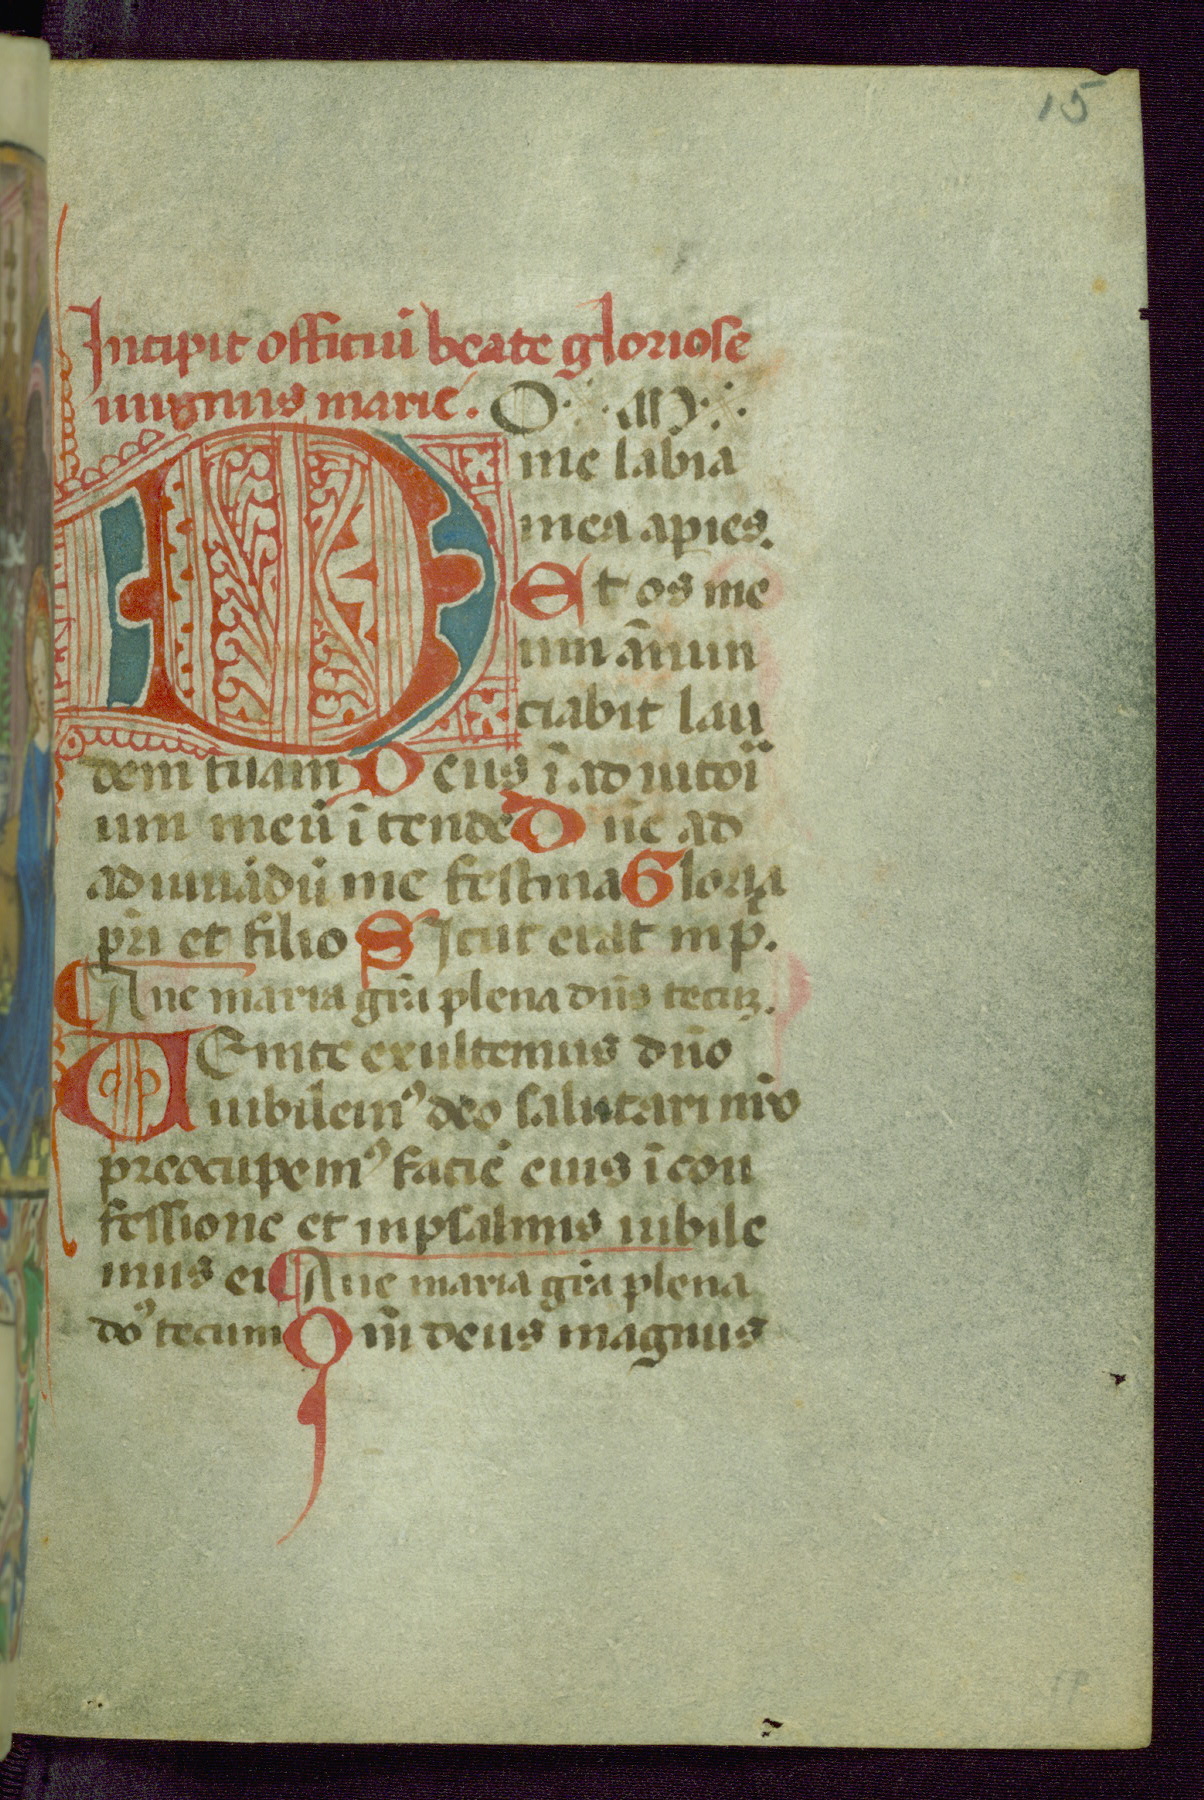 15
Incipit officiū beate gloriose
uirginis marie.
D O M
ine labia
mea apies.
Et os me
um ānun
ciabit lau
dem tuam Deus ī adiutoī
um meū ītende Dn̄e ad
adiuuādū me festina Gloria
pr̄i et filio Sicut erat in p̄.
Aue maria gr̄a plena dn̄s tecuꝫ.
Uenite exultemus dn̄o
iubilemꝰ deo salutari nr̄o
preocupemꝰ faciē eius ī con
fessione et in psalmis iubile
mus ei Aue maria gr̄a plena
dōꝰ tecum Qm̄ deus magnus